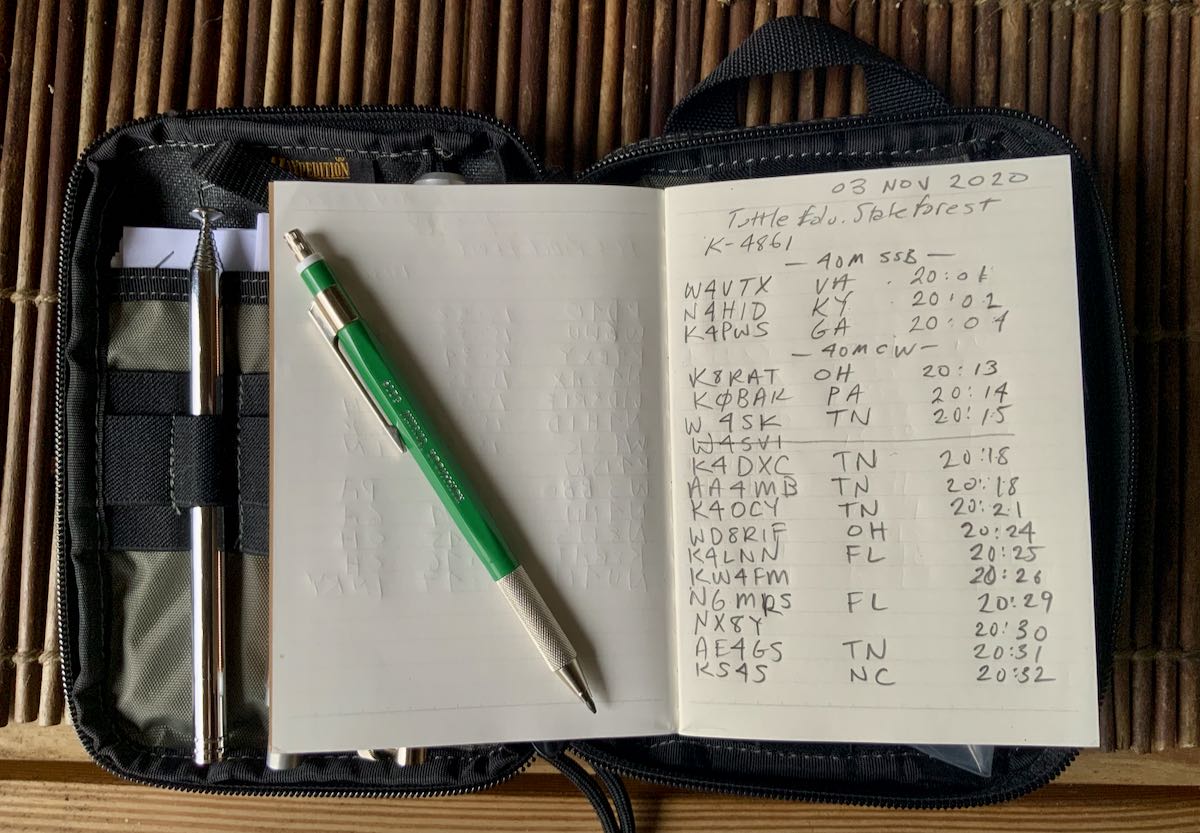 XPEDITION
03 NOV 2020
Tuttle Edu. State Forest
K-4861
— 40M SSB —
W4VTX VA 20:01
N4HID KY 20:02
K4PWS GA 20:04
— 40M CW —
K8RAT OH 20:13
KØBAK PA 20:14
W4SK TN 20:15
W4SVI
K4DXC TN 20:18
AA4MB TN 20:18
K4OCY TN 20:21
WD8RIF OH 20:24
K4LNN FL 20:25
KW4FM 20:26
NG MRS FL 20:29
NX8Y 20:30
AE4GS TN 20:31
KS4S NC 20:32